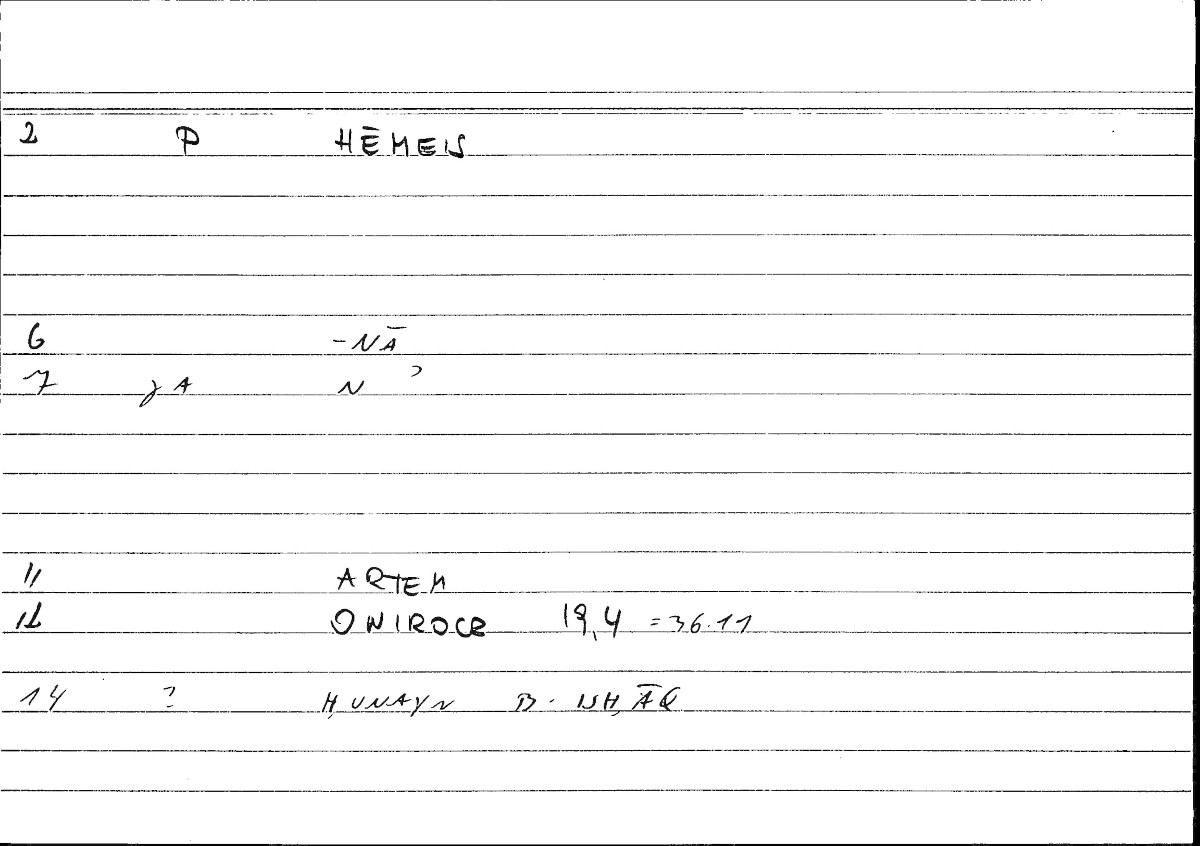 2 P HĒMEIS
6 -NĀ
7 JA N ʾ
11 ARTEM
12 ONIROCR 19,4 =36.11
14 ? ḤUNAYN B. ISḤĀQ